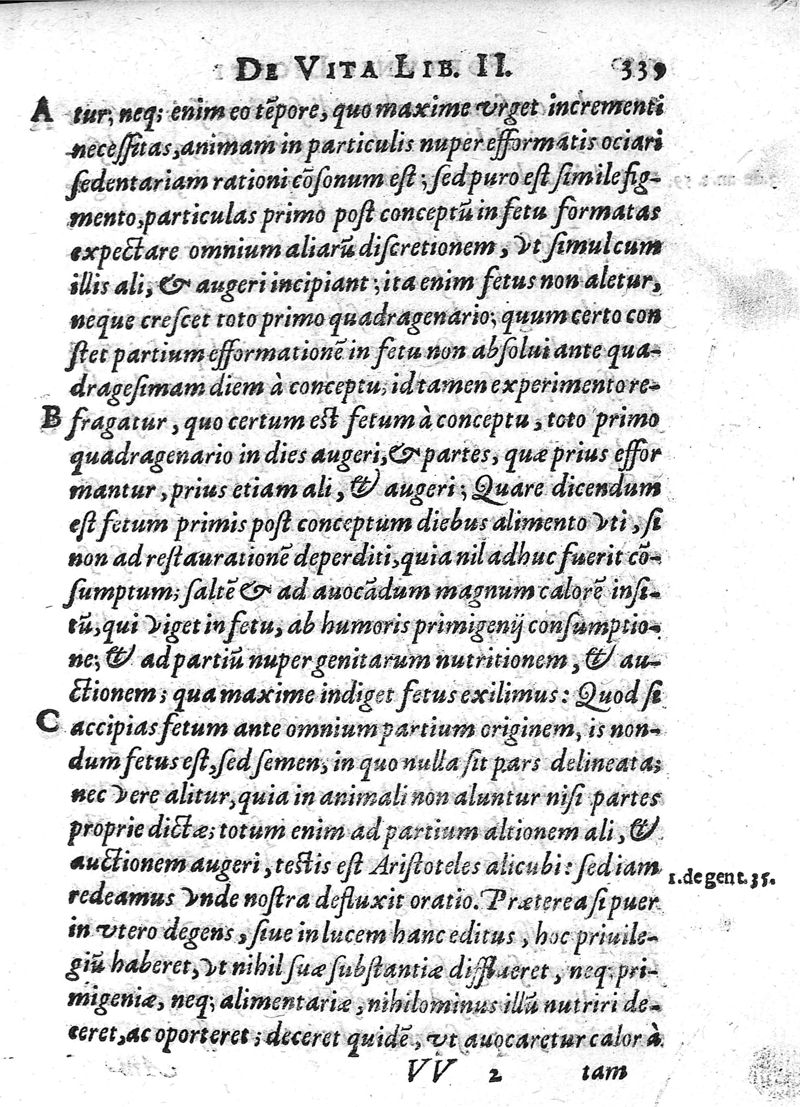 DE VITA LIB. II. 339
A tur, neq; enim eo tēpore, quo maxime vrget incrementi
necessitas, animam in particulis nuper efformatis ociari
sedentariam rationi cōsonum est; sed puro est simile fig-
mento, particulas primo post conceptū in fetu formatas
expectare omnium aliarū discretionem, vt simul cum
illis ali, & augeri incipiant; ita enim fetus non aletur,
neque crescet toto primo quadragenario; quum certo con
stet partium efformationē in fetu non absolui ante qua-
dragesimam diem à conceptu; id tamen experimento re-
B fragatur, quo certum est fetum à conceptu, toto primo
quadragenario in dies augeri, & partes, quæ prius effor
mantur, prius etiam ali, & augeri; Quare dicendum
est fetum primis post conceptum diebus alimento vti, si
non ad restaurationē deperditi, quia nil adhuc fuerit cō-
sumptum; saltē & ad auocādum magnum calorē insi-
tū, qui viget in fetu, ab humoris primigenij consumptio-
ne; & ad partiū nuper genitarum nutritionem, & au-
ctionem; qua maxime indiget fetus exilimus: Quod si
C accipias fetum ante omnium partium originem, is non-
dum fetus est, sed semen; in quo nulla sit pars delineata;
nec vere alitur, quia in animali non aluntur nisi partes
proprie dictæ; totum enim ad partium altionem ali, &
auctionem augeri, testis est Aristoteles alicubi: sed iam
1. de gent. 35.
redeamus vnde nostra defluxit oratio. Præterea si puer
in vtero degens, siue in lucem hanc editus, hoc priuile-
giū haberet, vt nihil suæ substantiæ difflueret, neq; pri-
migeniæ, neq; alimentariæ, nihilominus illū nutriri de-
ceret, ac oporteret; deceret quidē, vt auocaretur calor à
VV 2 iam